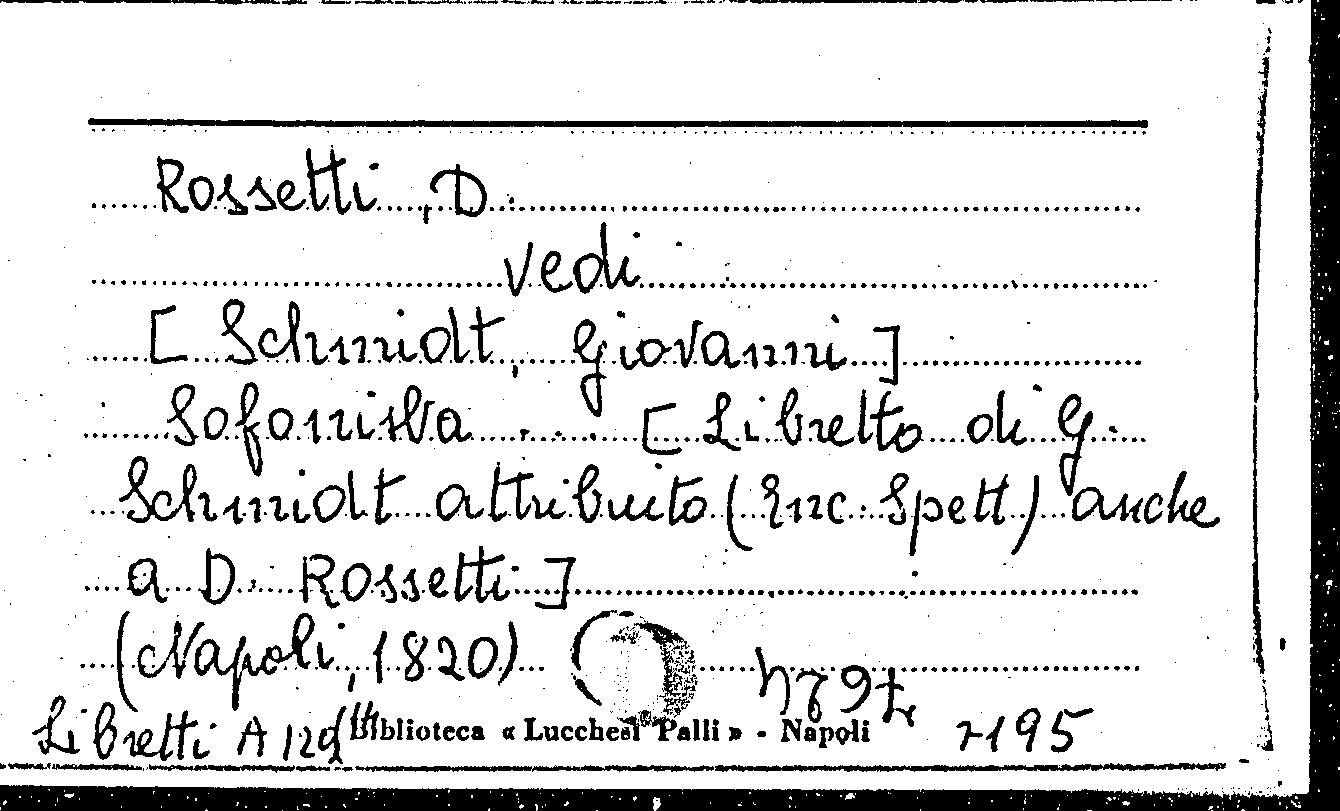 Rossetti, D.
vedi
[ Schmidt, Giovanni ]
Sofonisba ... [ Libretto di G.
Schmidt attribuito (Enc. Spett.) anche
a D. Rossetti ]
(Napoli, 1820)
Libretti A 129 Biblioteca « Lucchesi Palli » - Napoli